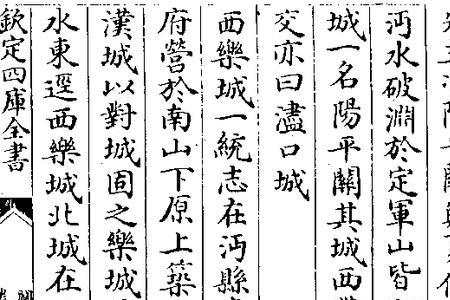 沔水破淵於定軍山皆
城一名陽平關其城西
交亦曰濜口城
西樂城一統志在沔縣
府營於南山下原上築
漢城以對城固之樂城
水東逕西樂城北城在
欽定四庫全書